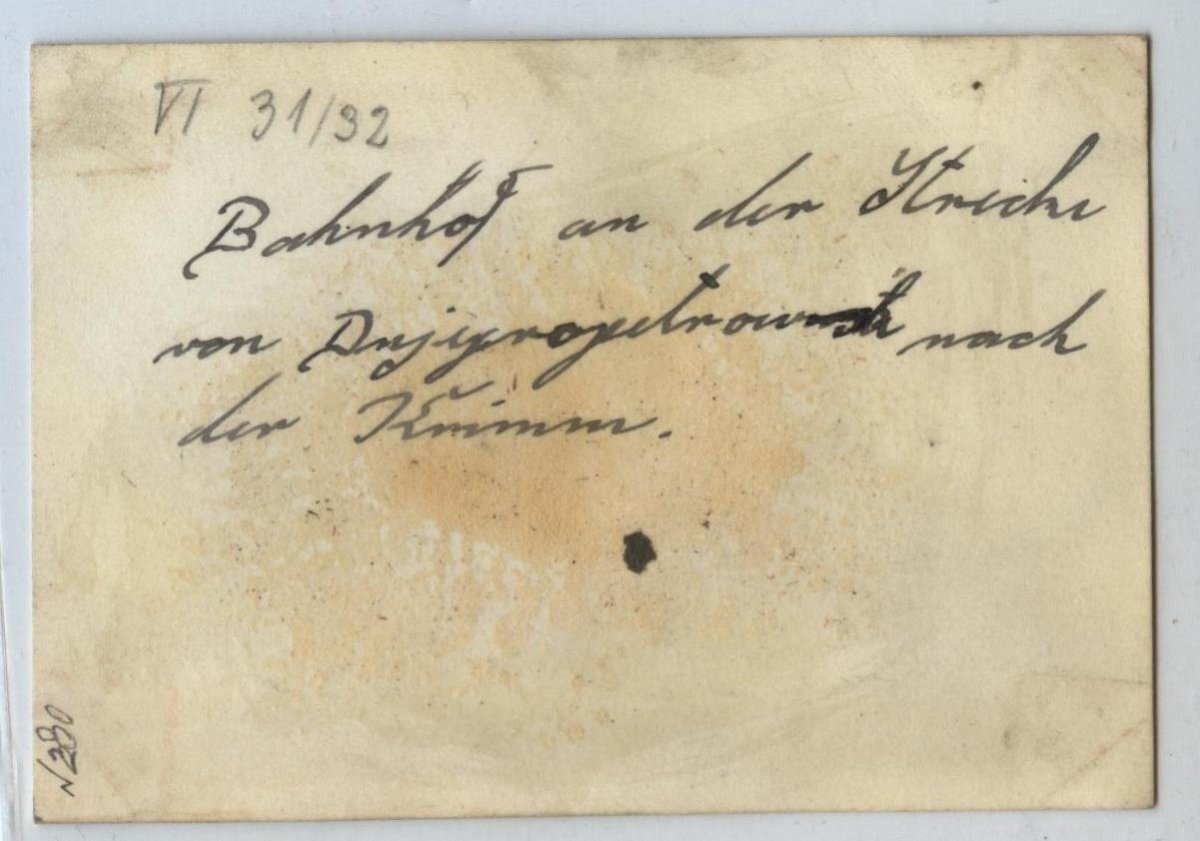 VI 31/32
Bahnhof an der Strecke
von Dnjepropetrowsk nach
der Krimm.
N 280